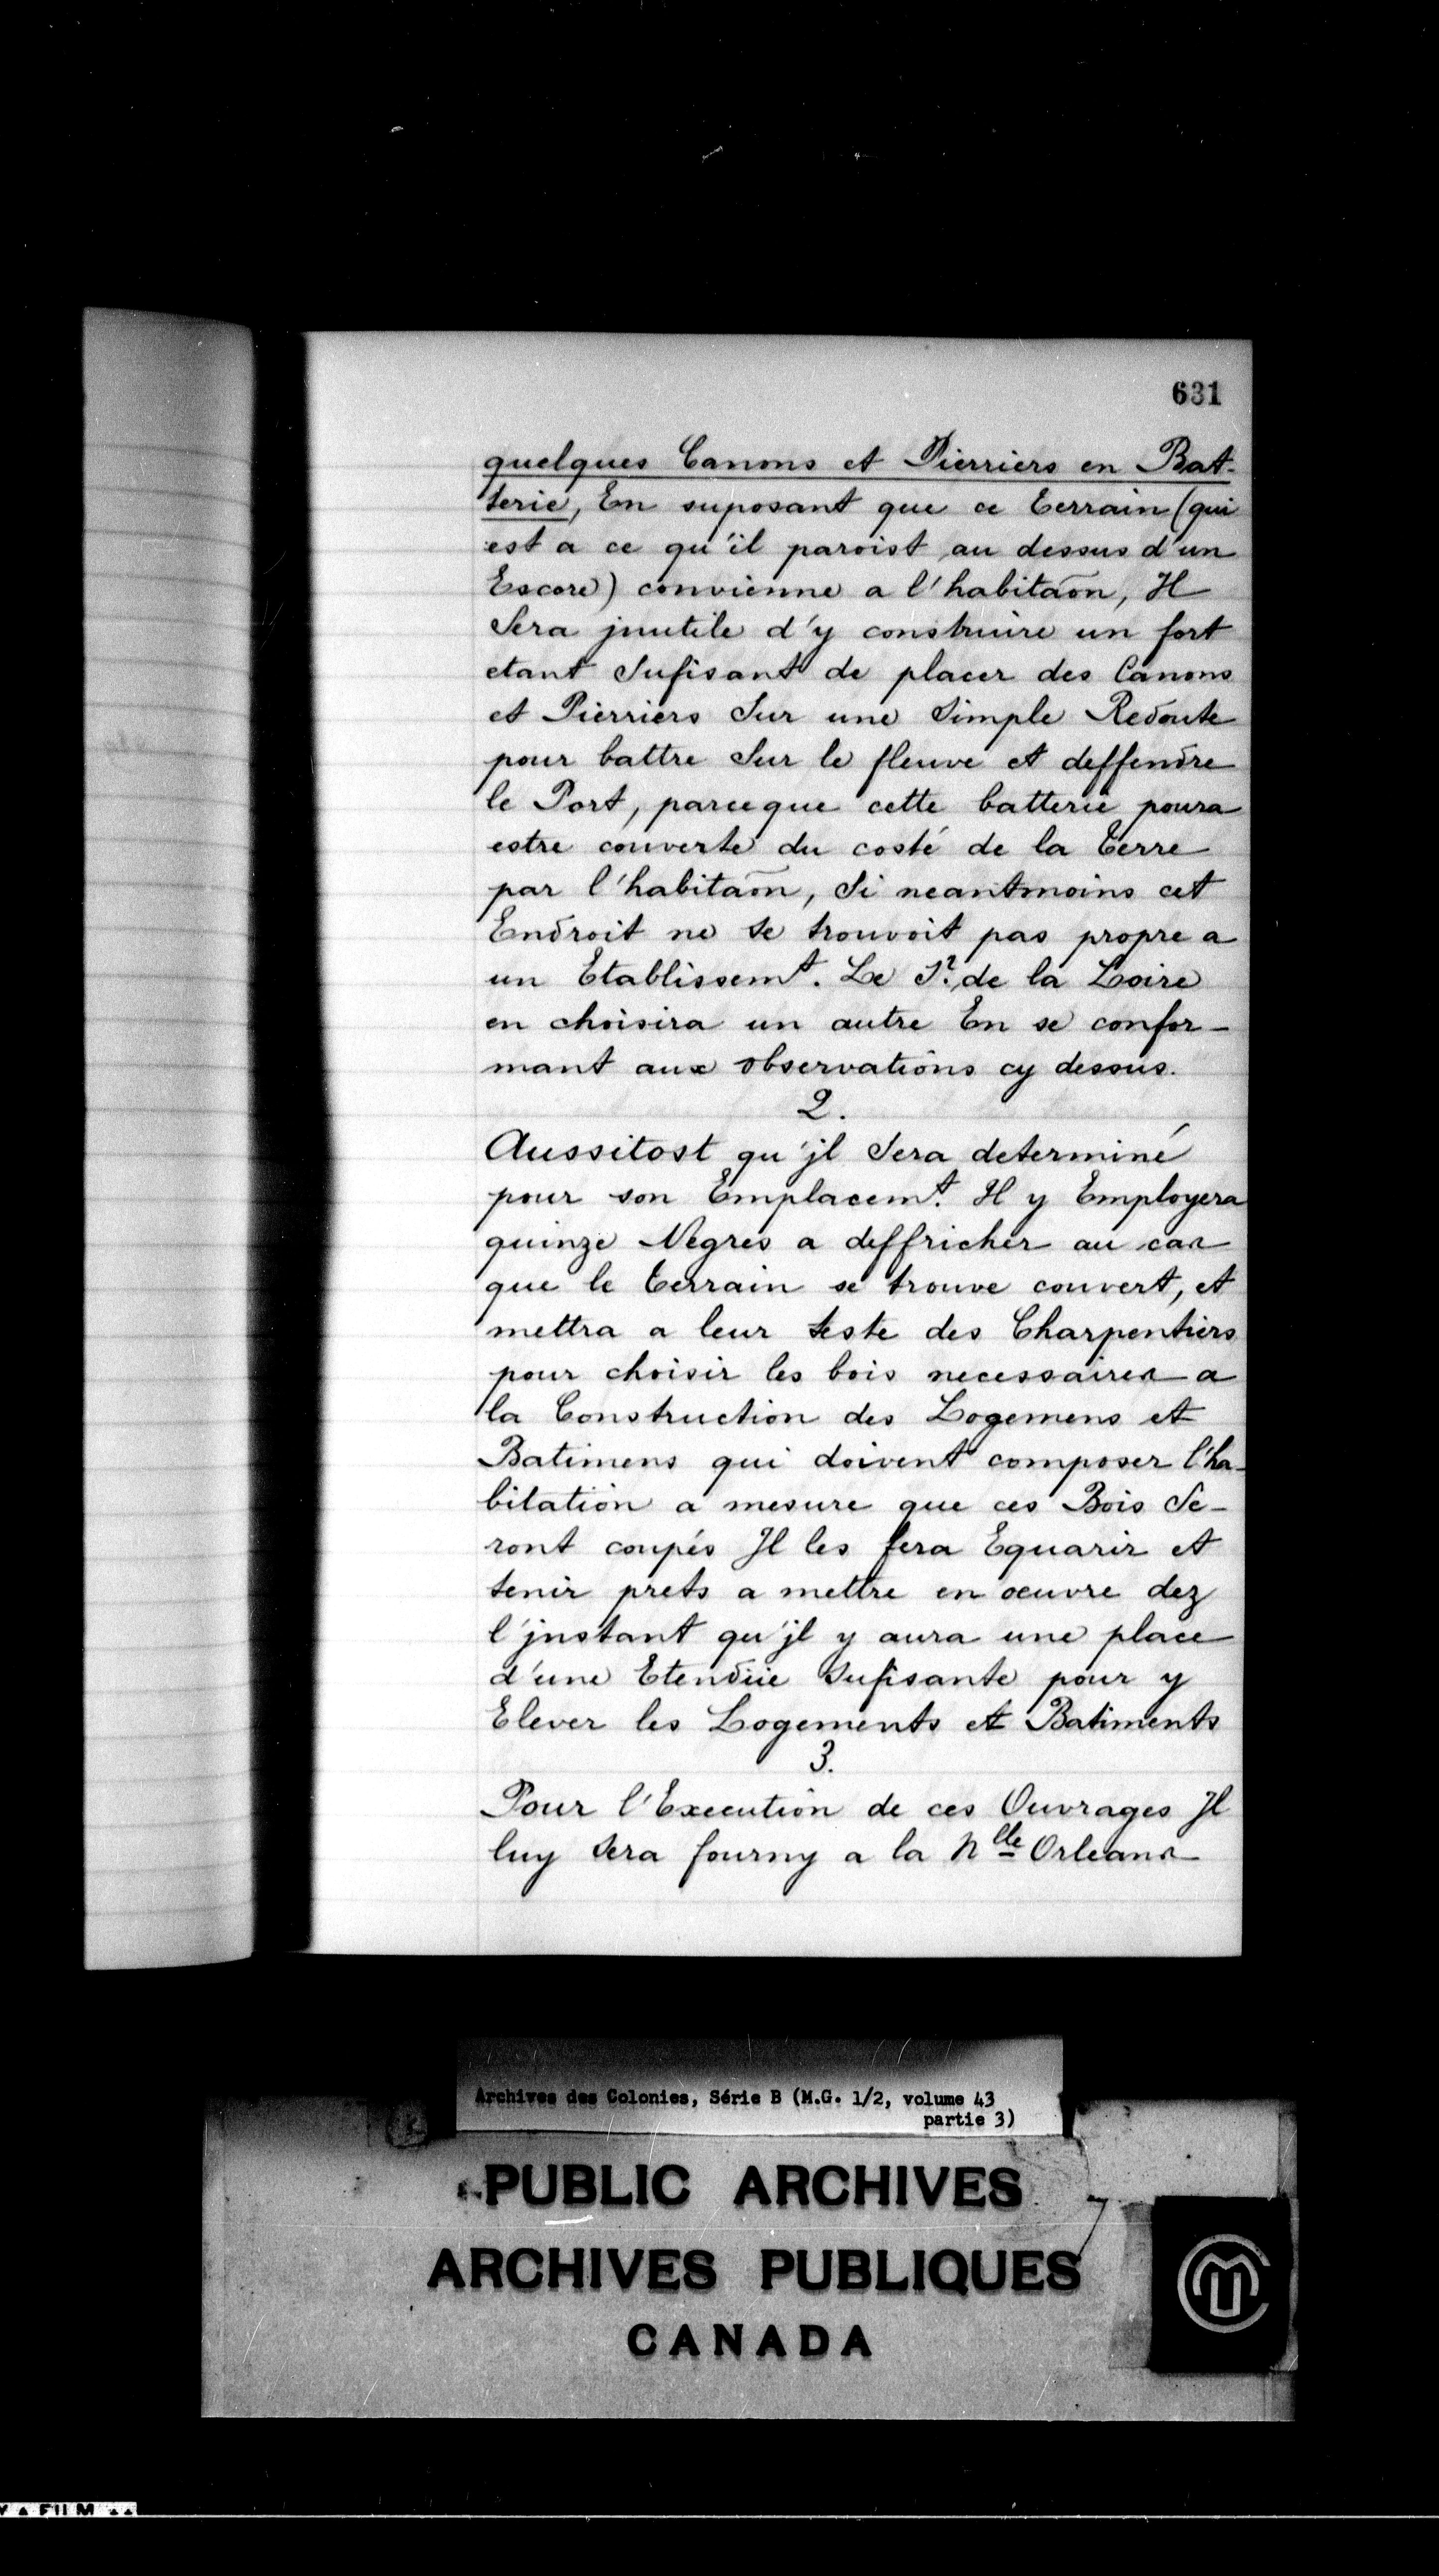 631
quelques Canons et Pierriers en Bat-
terie, En suposant que ce terrain (qui
est a ce qu'il paroist au dessus d'un
Escore) convienne a l'habitaõn, Il
Sera jnutile d'y construire un fort
etant Sufisant de placer des Canons
et Pierriers Sur une Simple Redoute
pour battre Sur le fleuve et deffendre
le Port, parceque cette batterie poura
estre couverte du costé de la terre
par l'habitaõn, Si neantmoins cet
Endroit ne se trouvoit pas propre a
un Etablissemt. Le Sr. de la Loire
en choisira un autre En se confor-
mant aux observations cy dessus.
2.
Aussitost qu'jl Sera determiné
pour son Emplacemt. Il y Employera
quinze Negres a deffricher au cas
que le terrain se trouve couvert, et
mettra a leur teste des Charpentiers
pour choisir les bois necessaires a
la Construction des Logemens et
Batimens qui doivent composer l'ha-
bitation a mesure que ces Bois Se-
ront coupés Jl les fera Equarir et
tenir prets a mettre en œuvre dez
l'jnstant qu'jl y aura une place
d'une Etendüe Sufisante pour y
Elever les Logements et Batiments
3.
Pour l'Execution de ces Ouvrages Jl
luy sera fourny a la Nlle Orleans
Archives des Colonies, Série B (M.G. 1/2, volume 43
partie 3)
PUBLIC ARCHIVES
ARCHIVES PUBLIQUES
CANADA